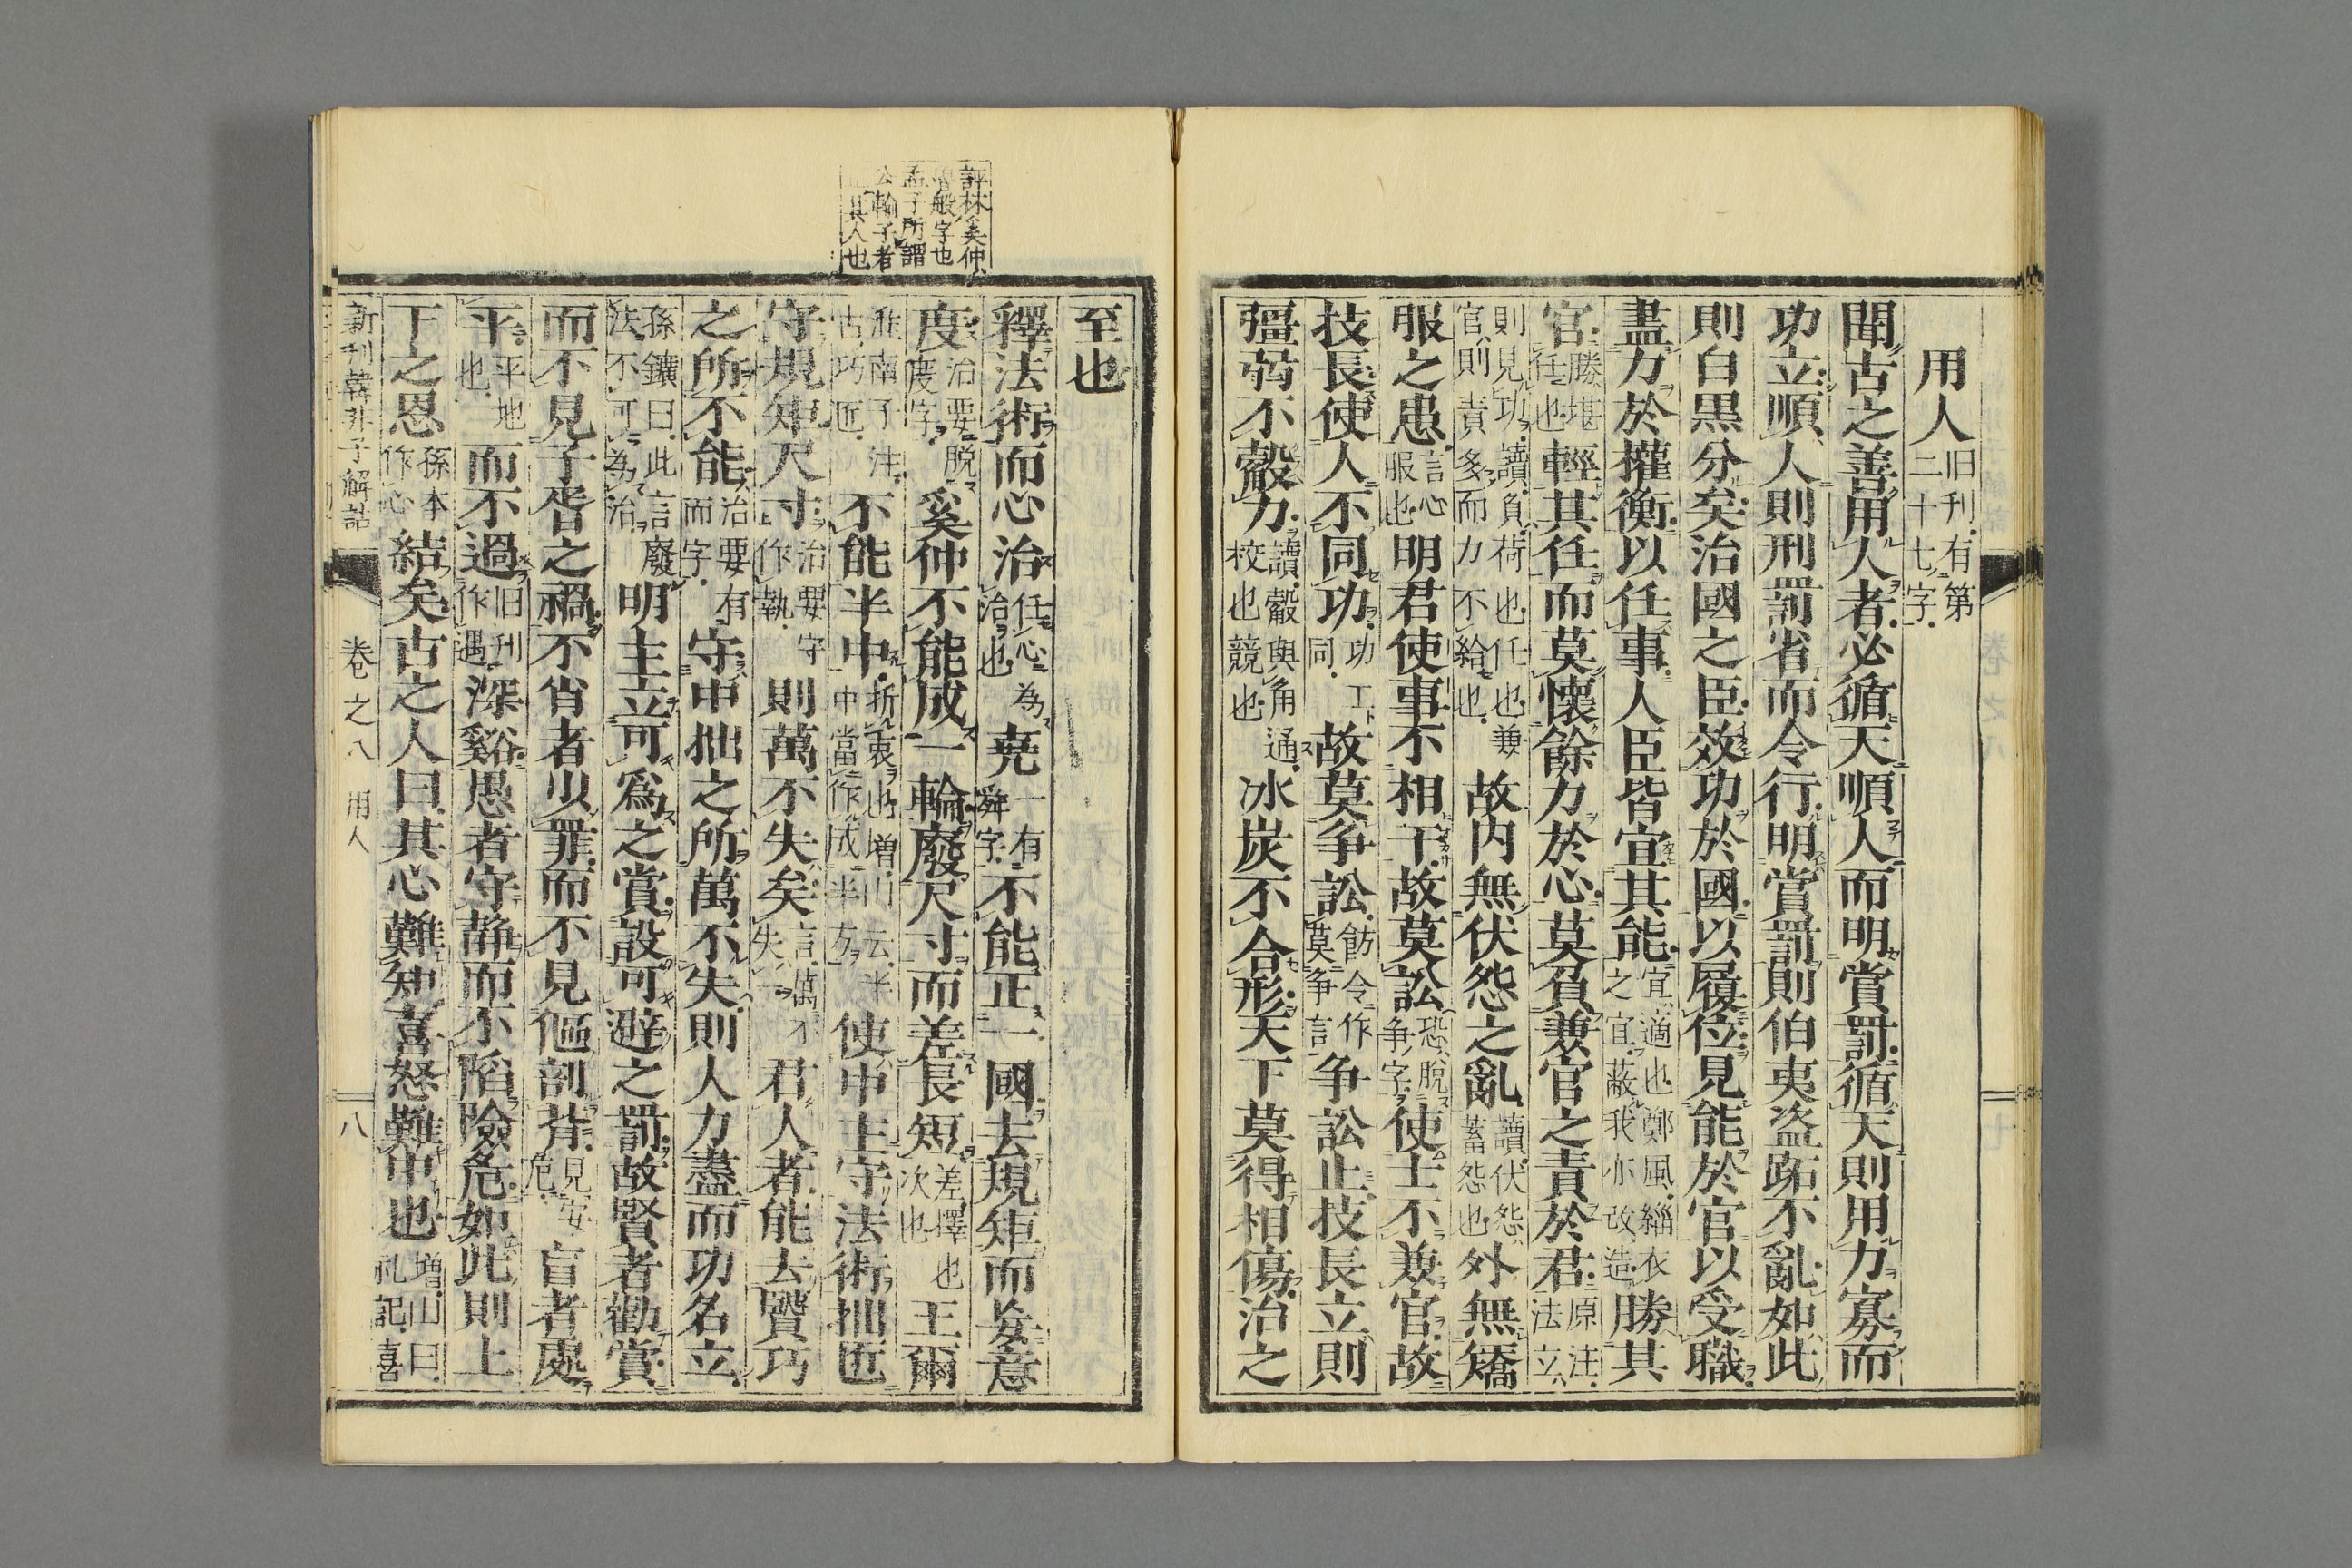 用人旧刊有第二十七字
聞古之善用人者必循天順人而明賞罰循天則用力寡而
功立順人則刑罰省而令行明賞罰則伯夷盗跖不亂如此
則白黒分矣治國之臣效功於國以履位見能於官以受職
盡力於權衡以任事人臣皆宜其能宜適也鄭風緇衣之宜蔽我亦改造勝其
官勝堪任也輕其任而莫懷餘力於心莫負兼官之責於君原注法立
則見功讀負荷也任也兼官則責多而力不給也故内無伏怨之亂讀伏怨蓄怨也外無矯
服之患言心服也明君使事不相干故莫訟恐脱争字使士不兼官故
技長使人不同功功工同故莫争訟飭令作莫争言争訟止技長立則
彊弱不觳力讀觳與角通校也競也冰炭不合形天下莫得相傷治之
評林奚仲
魯般字也
孟子所謂
公輪子者
其人也
至也
釋法術而心治任心為治也堯一有舜字不能正一國去規矩而妄意
度治要脱度字奚仲不能成一輪廢尺寸而差長短差擇也次也王爾
淮南子注古巧匠不能半中折衷也増山云半中當作成半方使中主守法術拙匠
守規矩尺寸治要守作執則萬不失矣言萬不失一君人者能去賢巧
之所不能治要有而字守中拙之所萬不失則人力盡而功名立
孫鑛曰此言廢法不可為治明主立可爲之賞設可避之罰故賢者勸賞
而不見子胥之禍不肖者少罪而不見傴剖背見安危盲者處
平平地也而不過旧刊作遇深谿愚者守静而不陷險危如此則上
下之恩孫本作心結矣古之人曰其心難知喜怒難中也増山曰礼記喜
新刊韓非子解詁 卷之八 用人 八